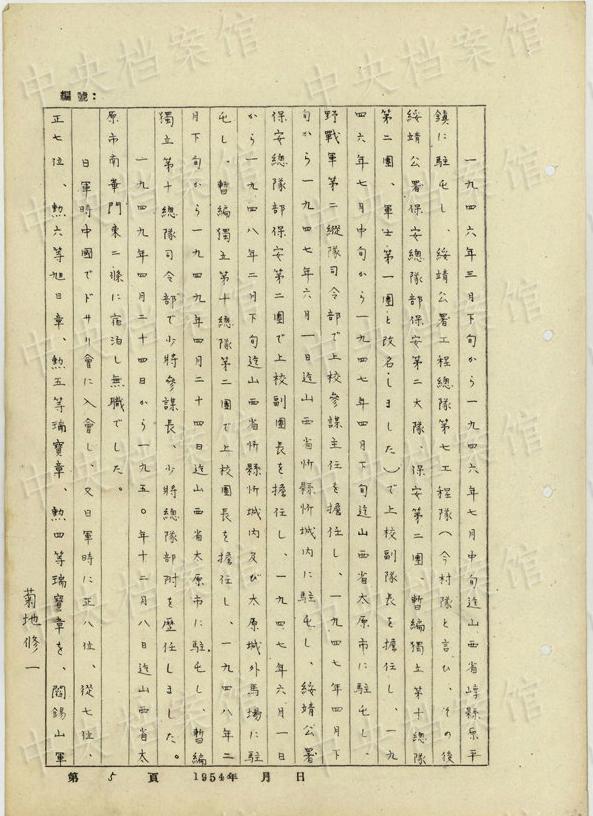 編號：
一九四六年三月下旬から一九四六年七月中旬迄山西省崞縣原平
鎮に駐屯し、綏靖公署工程總隊第七工程隊（今村隊と言ひ、その後
綏靖公署保安總隊部保安第二大隊、保安第二團、暫編獨立第十總隊
第二團、軍士第一團と改名しました）で上校副隊長を擔任し、一九
四六年七月中旬から一九四七年四月下旬迄山西省太原市に駐屯し、
野戰軍第二縱隊司令部で上校參謀主任を擔任し、一九四七年四月下
旬から一九四七年六月一日迄山西省忻縣忻城内に駐屯し、綏靖公署
保安總隊部保安第二團で上校副團長を擔任し、一九四七年六月一日
から一九四八年二月下旬迄山西省忻縣忻城内及び太原城外馬場に駐
屯し、暫編獨立第十總隊第二團で上校團長を擔任し、一九四八年二
月下旬から一九四九年四月二十四日迄山西省太原市に駐屯し、暫編
獨立第十總隊司令部で少將參謀長、少將總隊部附を歷任しました。
一九四九年四月二十四日から一九五〇年十二月八日迄山西省太
原市南華門東二條に宿泊し無職でした。
日軍時中國でドサリ會に入會し、又日軍時に正八位、從七位、
正七位、勲六等旭日章、勲五等瑞寶章、勲四等瑞寶章を、閻錫山軍
菊地修一
第 5 頁 1954年 月 日
中央档案馆